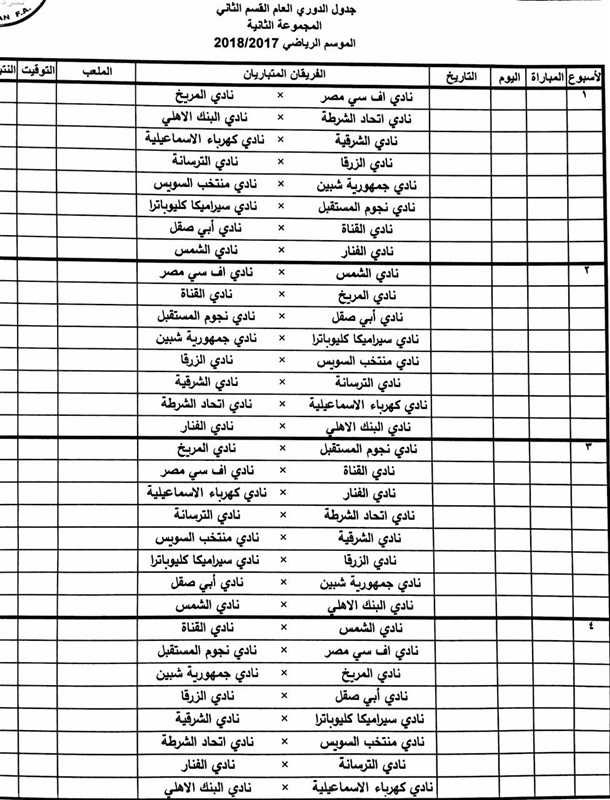 AN F.A.
جدول الدوري العام القسم الثاني
المجموعة الثانية
الموسم الرياضي 2018/2017
لأسبوع المباراة اليوم التاريخ الفريقان المتباريان الملعب التوقيت النتي
١ نادي اف سي مصر × نادي المريخ
نادي اتحاد الشرطة × نادي البنك الاهلي
نادي الشرقية × نادي كهرباء الاسماعيلية
نادي الزرقا × نادي الترسانة
نادي جمهورية شبين × نادي منتخب السويس
نادي نجوم المستقبل × نادي سيراميكا كليوباترا
نادي القناة × نادي أبي صقل
نادي الفنار × نادي الشمس
٢ نادي الشمس × نادي اف سي مصر
نادي المريخ × نادي القناة
نادي أبي صقل × نادي نجوم المستقبل
نادي سيراميكا كليوباترا × نادي جمهورية شبين
نادي منتخب السويس × نادي الزرقا
نادي الترسانة × نادي الشرقية
نادي كهرباء الاسماعيلية × نادي اتحاد الشرطة
نادي البنك الاهلي × نادي الفنار
٣ نادي نجوم المستقبل × نادي المريخ
نادي القناة × نادي اف سي مصر
نادي الفنار × نادي كهرباء الاسماعيلية
نادي اتحاد الشرطة × نادي الترسانة
نادي الشرقية × نادي منتخب السويس
نادي الزرقا × نادي سيراميكا كليوباترا
نادي جمهورية شبين × نادي أبي صقل
نادي البنك الاهلي × نادي الشمس
٤ نادي الشمس × نادي القناة
نادي اف سي مصر × نادي نجوم المستقبل
نادي المريخ × نادي جمهورية شبين
نادي أبي صقل × نادي الزرقا
نادي سيراميكا كليوباترا × نادي الشرقية
نادي منتخب السويس × نادي اتحاد الشرطة
نادي الترسانة × نادي الفنار
نادي كهرباء الاسماعيلية × نادي البنك الاهلي